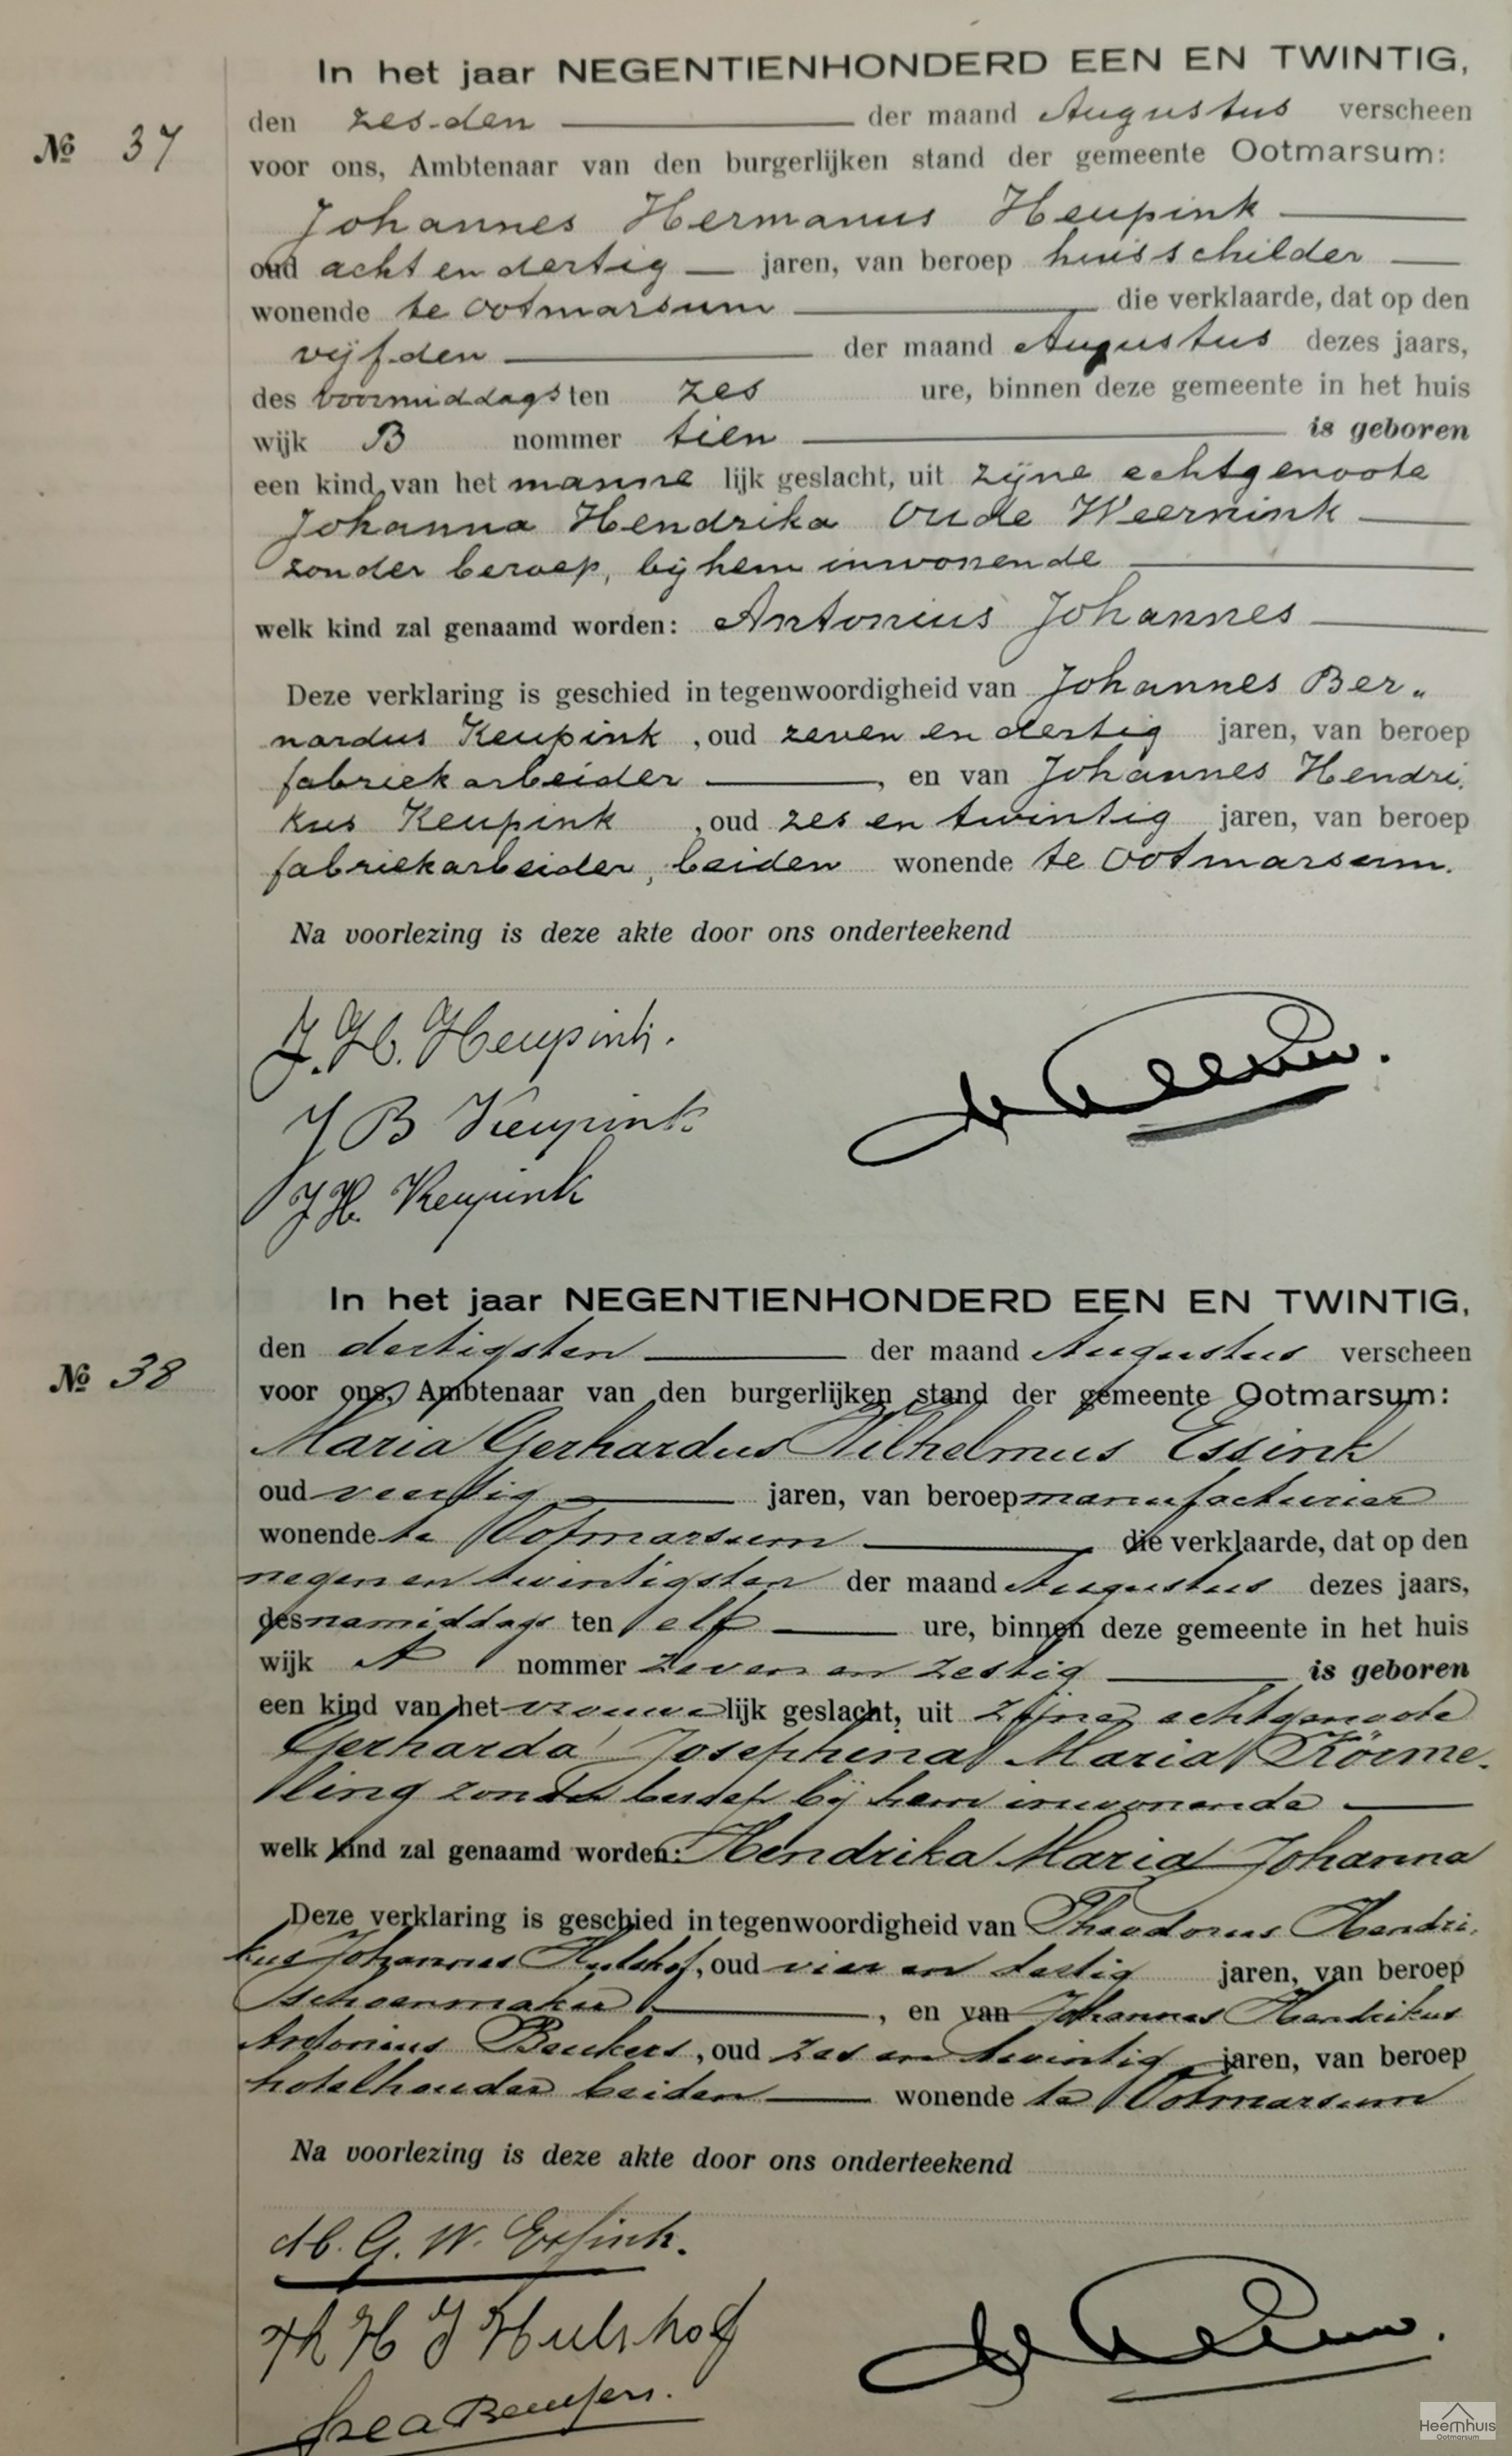 In het jaar NEGENTIENHONDERD EEN EN TWINTIG,
№ 37
den zesden der maand Augustus verscheen
voor ons, Ambtenaar van den burgerlijken stand der gemeente Ootmarsum:
Johannes Hermanus Heupink
oud acht en dertig jaren, van beroep huisschilder
wonende te Ootmarsum die verklaarde, dat op den
vijfden der maand Augustus dezes jaars,
des voormiddags ten zes ure, binnen deze gemeente in het huis
wijk B nommer tien is geboren
een kind van het manne lijk geslacht, uit zijne echtgenoote
Johanna Hendrika Oude Weernink
zonder beroep, bij hem inwonende
welk kind zal genaamd worden: Antonius Johannes
Deze verklaring is geschied in tegenwoordigheid van Johannes Ber„
nardus Keupink, oud zeven en dertig jaren, van beroep
fabriekarbeider, en van Johannes Hendri.
kus Keupink, oud zes en twintig jaren, van beroep
fabriekarbeider, beiden wonende te Ootmarsum.
Na voorlezing is deze akte door ons onderteekend
J. H. Heupink.
J B Keupink
J H. Keupink
In het jaar NEGENTIENHONDERD EEN EN TWINTIG,
№ 38
den dertigsten der maand Augustus verscheen
voor ons, Ambtenaar van den burgerlijken stand der gemeente Ootmarsum:
Maria Gerhardus Wilhelmus Essink
oud veertig jaren, van beroep manufacturier
wonende te Ootmarsum die verklaarde, dat op den
negen en twintigsten der maand Augustus dezes jaars,
des namiddags ten elf ure, binnen deze gemeente in het huis
wijk A nommer zeven en zestig is geboren
een kind van het vrouwe lijk geslacht, uit zijne echtgenoote
Gerharda Josephina Maria Röme-
ling zonder beroep bij hem inwonende
welk kind zal genaamd worden: Hendrika Maria Johanna
Deze verklaring is geschied in tegenwoordigheid van Theodorus Hendri.
kus Johannes Hulshof, oud vier en dertig jaren, van beroep
schoenmaker, en van Johannes Hendrikus
Antonius Beukers, oud zes en twintig jaren, van beroep
hotelhouder beiden wonende te Ootmarsum
Na voorlezing is deze akte door ons onderteekend
M. G. W. Essink.
Th H J Hulshof
Heemhuis
Ootmarsum